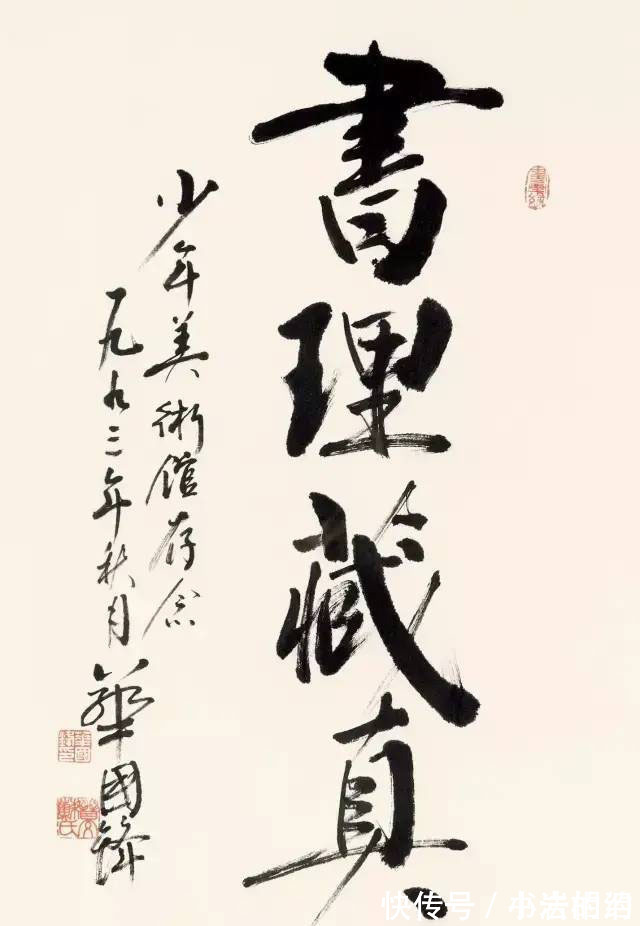 書理藏真
少年美術館存念
一九九二年秋月 華國鋒
快传号/书法相沿